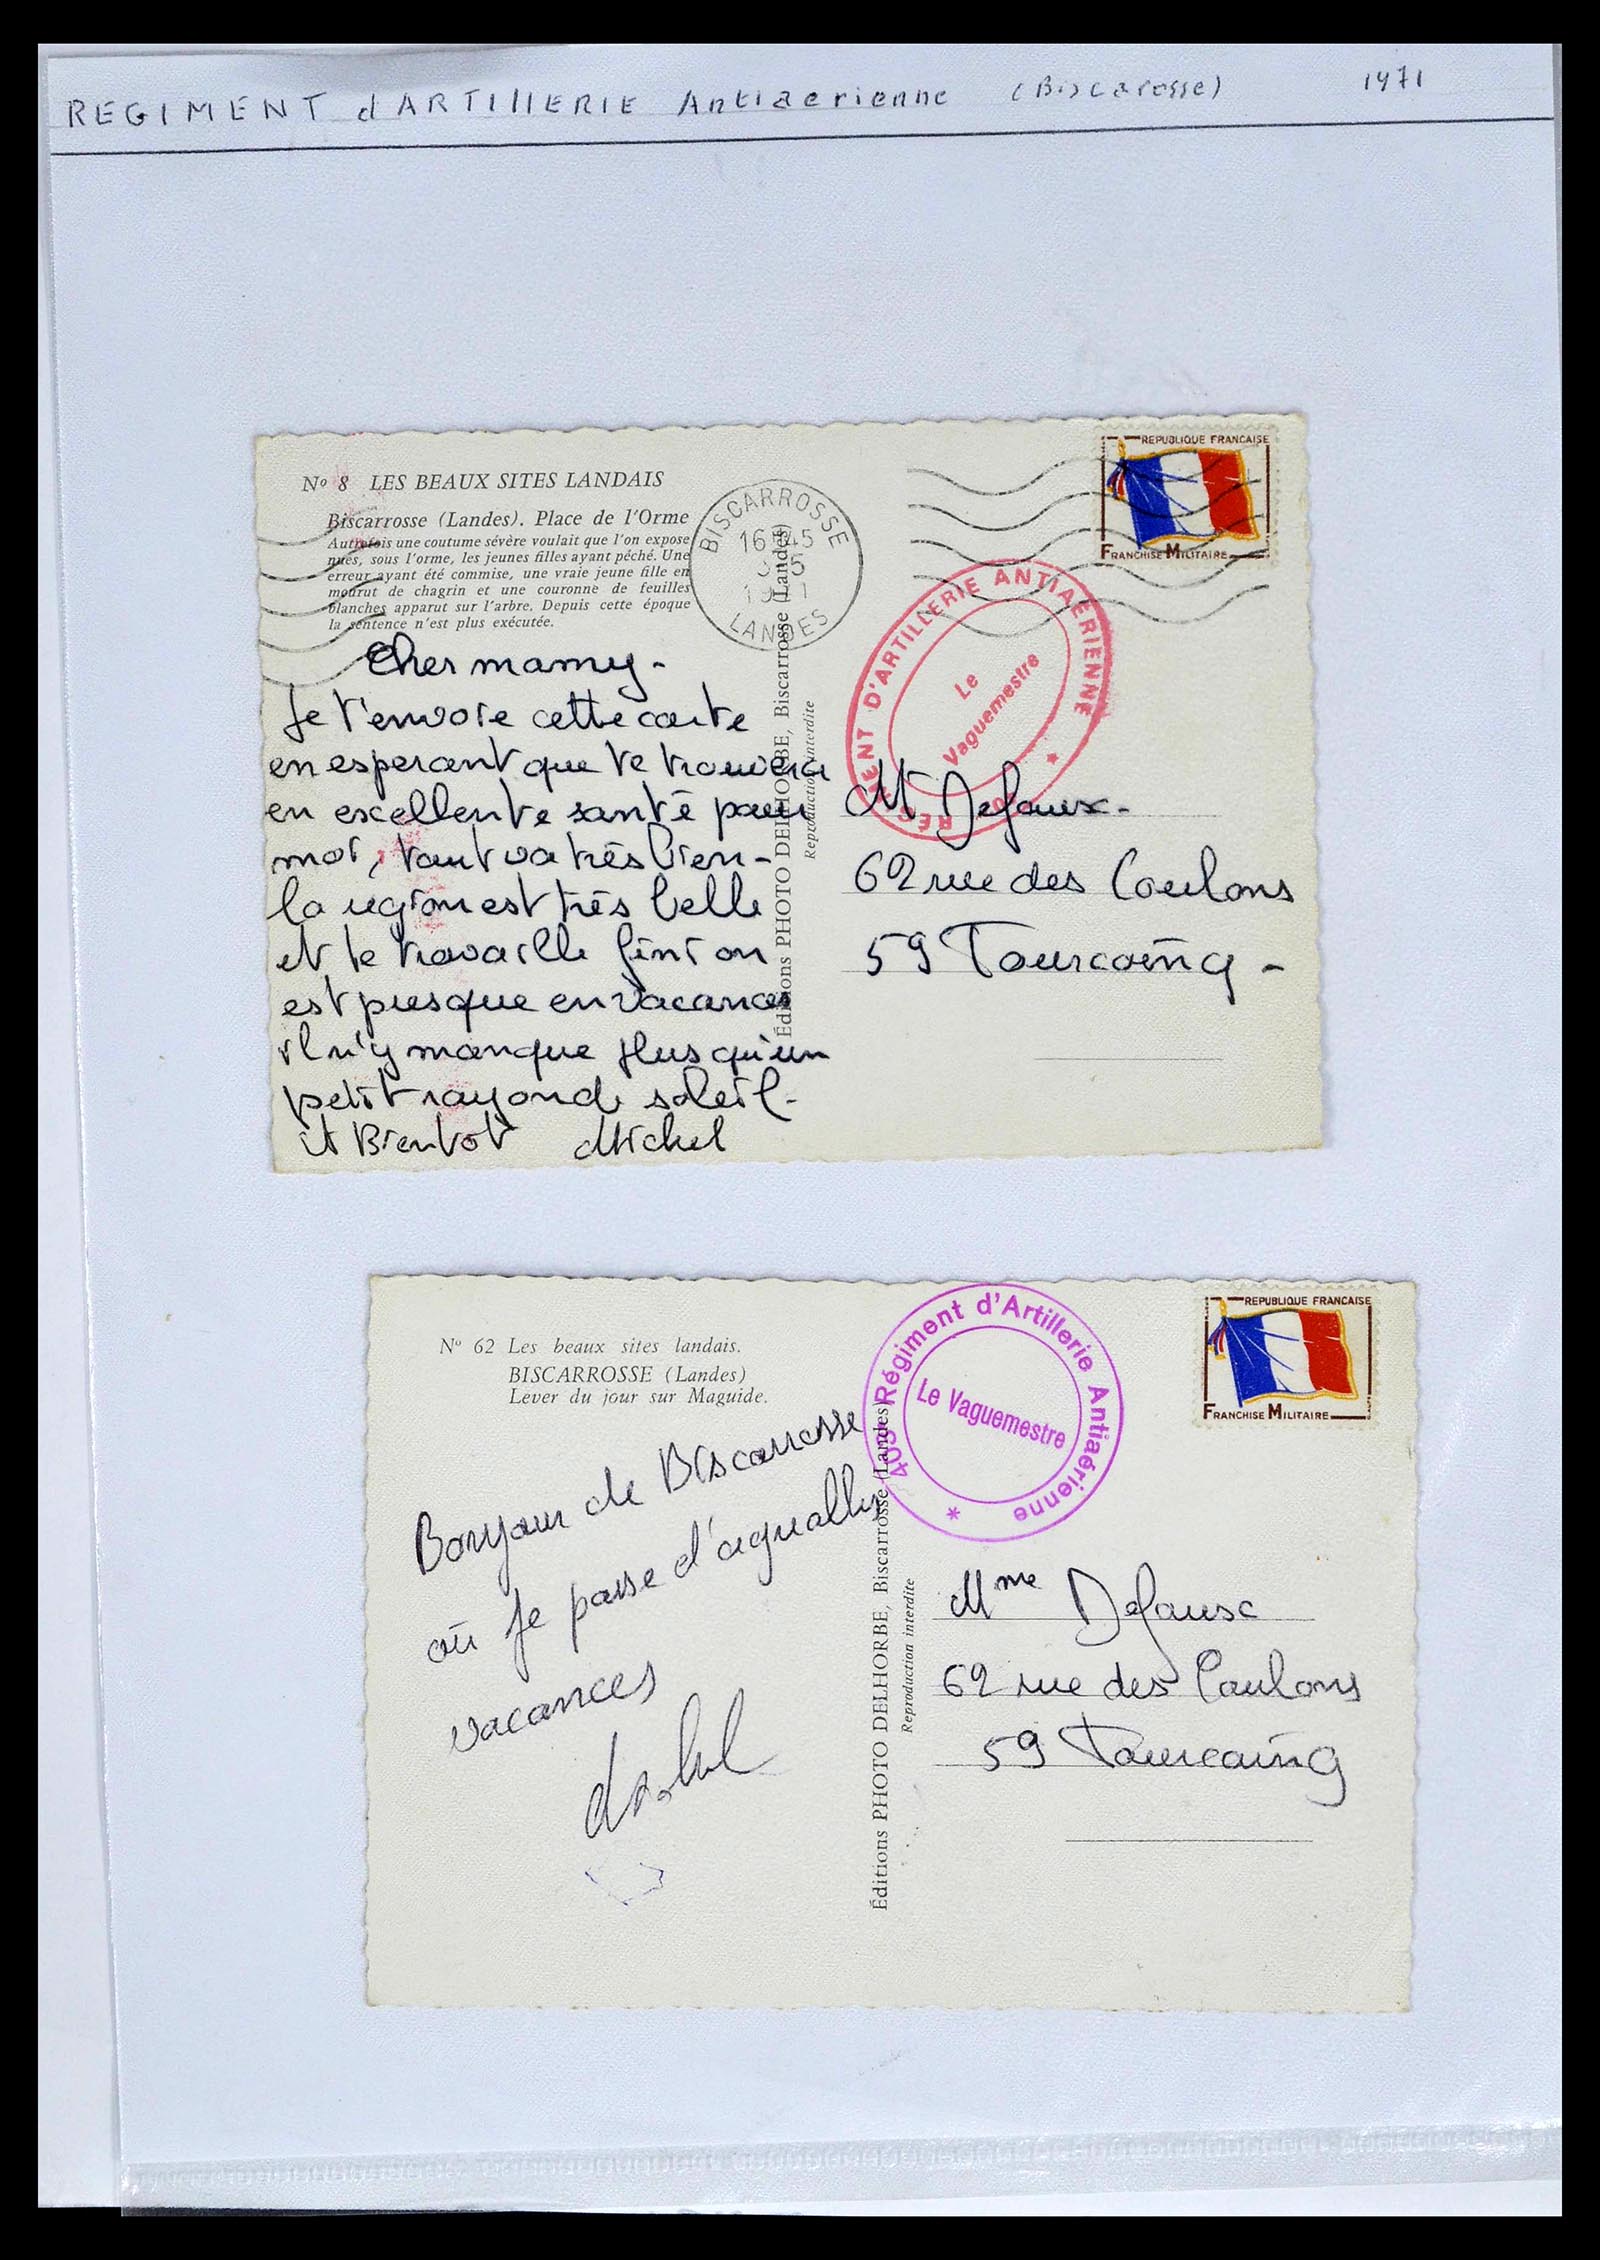 REGIMENT dARTIllERIE Antiaerienne (Biscarosse) 1971
No 8 LES BEAUX SITES LANDAIS
Biscarrosse (Landes). Place de l'Orme
Autrefois une coutume sévère voulait que l'on expose
nues, sous l'orme, les jeunes filles ayant péché. Une
erreur ayant été commise, une vraie jeune fille en
mourut de chagrin et une couronne de feuilles
blanches apparut sur l'arbre. Depuis cette époque
la sentence n'est plus exécutée.
BISCARROSSE
16H45
1971
LANDES
REPUBLIQUE FRANCAISE
FRANCHISE MILITAIRE
RÉGIMENT D'ARTILLERIE ANTIAÉRIENNE
Le
Vaguemestre
*
Cher mamy-
Je t'envoie cette carte
en esperant que te trouvera
en excellente santé pour
moi, tout va très bien-
la region est très belle
et le travaille fini on
est presque en vacances
il n'y manque plus qu'un
petit rayon de soleil-
A Bientot Michel
Éditions PHOTO DELHORBE, Biscarrosse (Landes)
Reproduction interdite
Mr Defaux-
62 rue des Coulons
59 Tourcoing-
No 62 Les beaux sites landais.
BISCARROSSE (Landes)
Lever du jour sur Maguide.
403e Régiment d'Artillerie Antiaérienne
Le Vaguemestre
*
REPUBLIQUE FRANCAISE
FRANCHISE MILITAIRE
Bonjour de Biscarrosse
où je passe d'agreables
vacances
Éditions PHOTO DELHORBE, Biscarrosse (Landes)
Reproduction interdite
Mme Defaux
62 rue des Coulons
59 Tourcoing